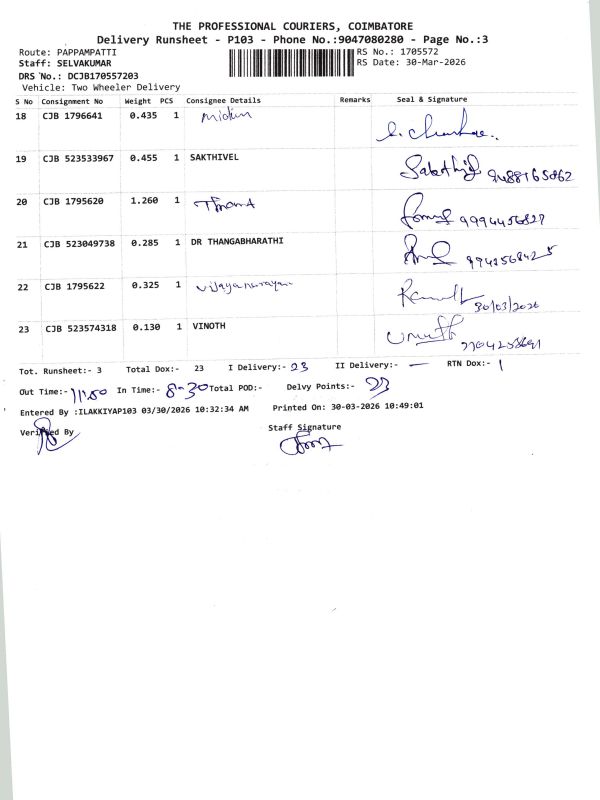 THE PROFESSIONAL COURIERS, COIMBATORE
Delivery Runsheet - P103 - Phone No.:9047080280 - Page No.:3
Route: PAPPAMPATTI RS No.: 1705572
Staff: SELVAKUMAR RS Date: 30-Mar-2026
DRS No.: DCJB170557203
Vehicle: Two Wheeler Delivery
S No Consignment No Weight PCS Consignee Details Remarks Seal & Signature
18 CJB 1796641 0.435 1
19 CJB 523533967 0.455 1 SAKTHIVEL Sakthivel 9488165062
20 CJB 1795620 1.260 1 9994456827
21 CJB 523049738 0.285 1 DR THANGABHARATHI
22 CJB 1795622 0.325 1 Vijayanarayan 30/03/2026
23 CJB 523574318 0.130 1 VINOTH
Tot. Runsheet:- 3 Total Dox:- 23 I Delivery:- 23 II Delivery:- — RTN Dox:- 1
Out Time:- 11:50 In Time:- 8-30 Total POD:- Delvy Points:- 23
Entered By :ILAKKIYAP103 03/30/2026 10:32:34 AM Printed On: 30-03-2026 10:49:01
Verified By Staff Signature